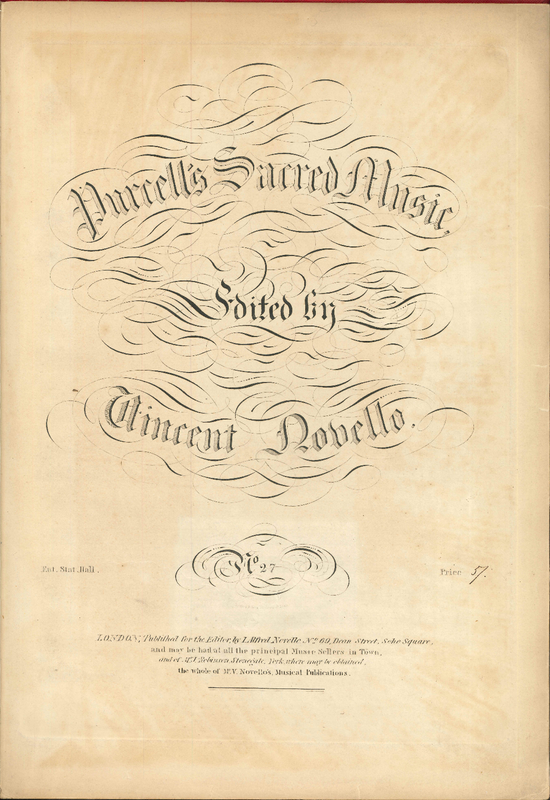 Purcell's Sacred Music,
Edited by
Vincent Novello.
No 27
Ent. Stat. Hall.
Price 5/.
LONDON, Published for the Editor, by J. Alfred Novello No 69, Dean Street, Soho Square,
and may be had at all the principal Music Sellers in Town,
and of Mr J. Robinson Stonegate, York, where may be obtained,
the whole of Mr V. Novello's, Musical Publications.